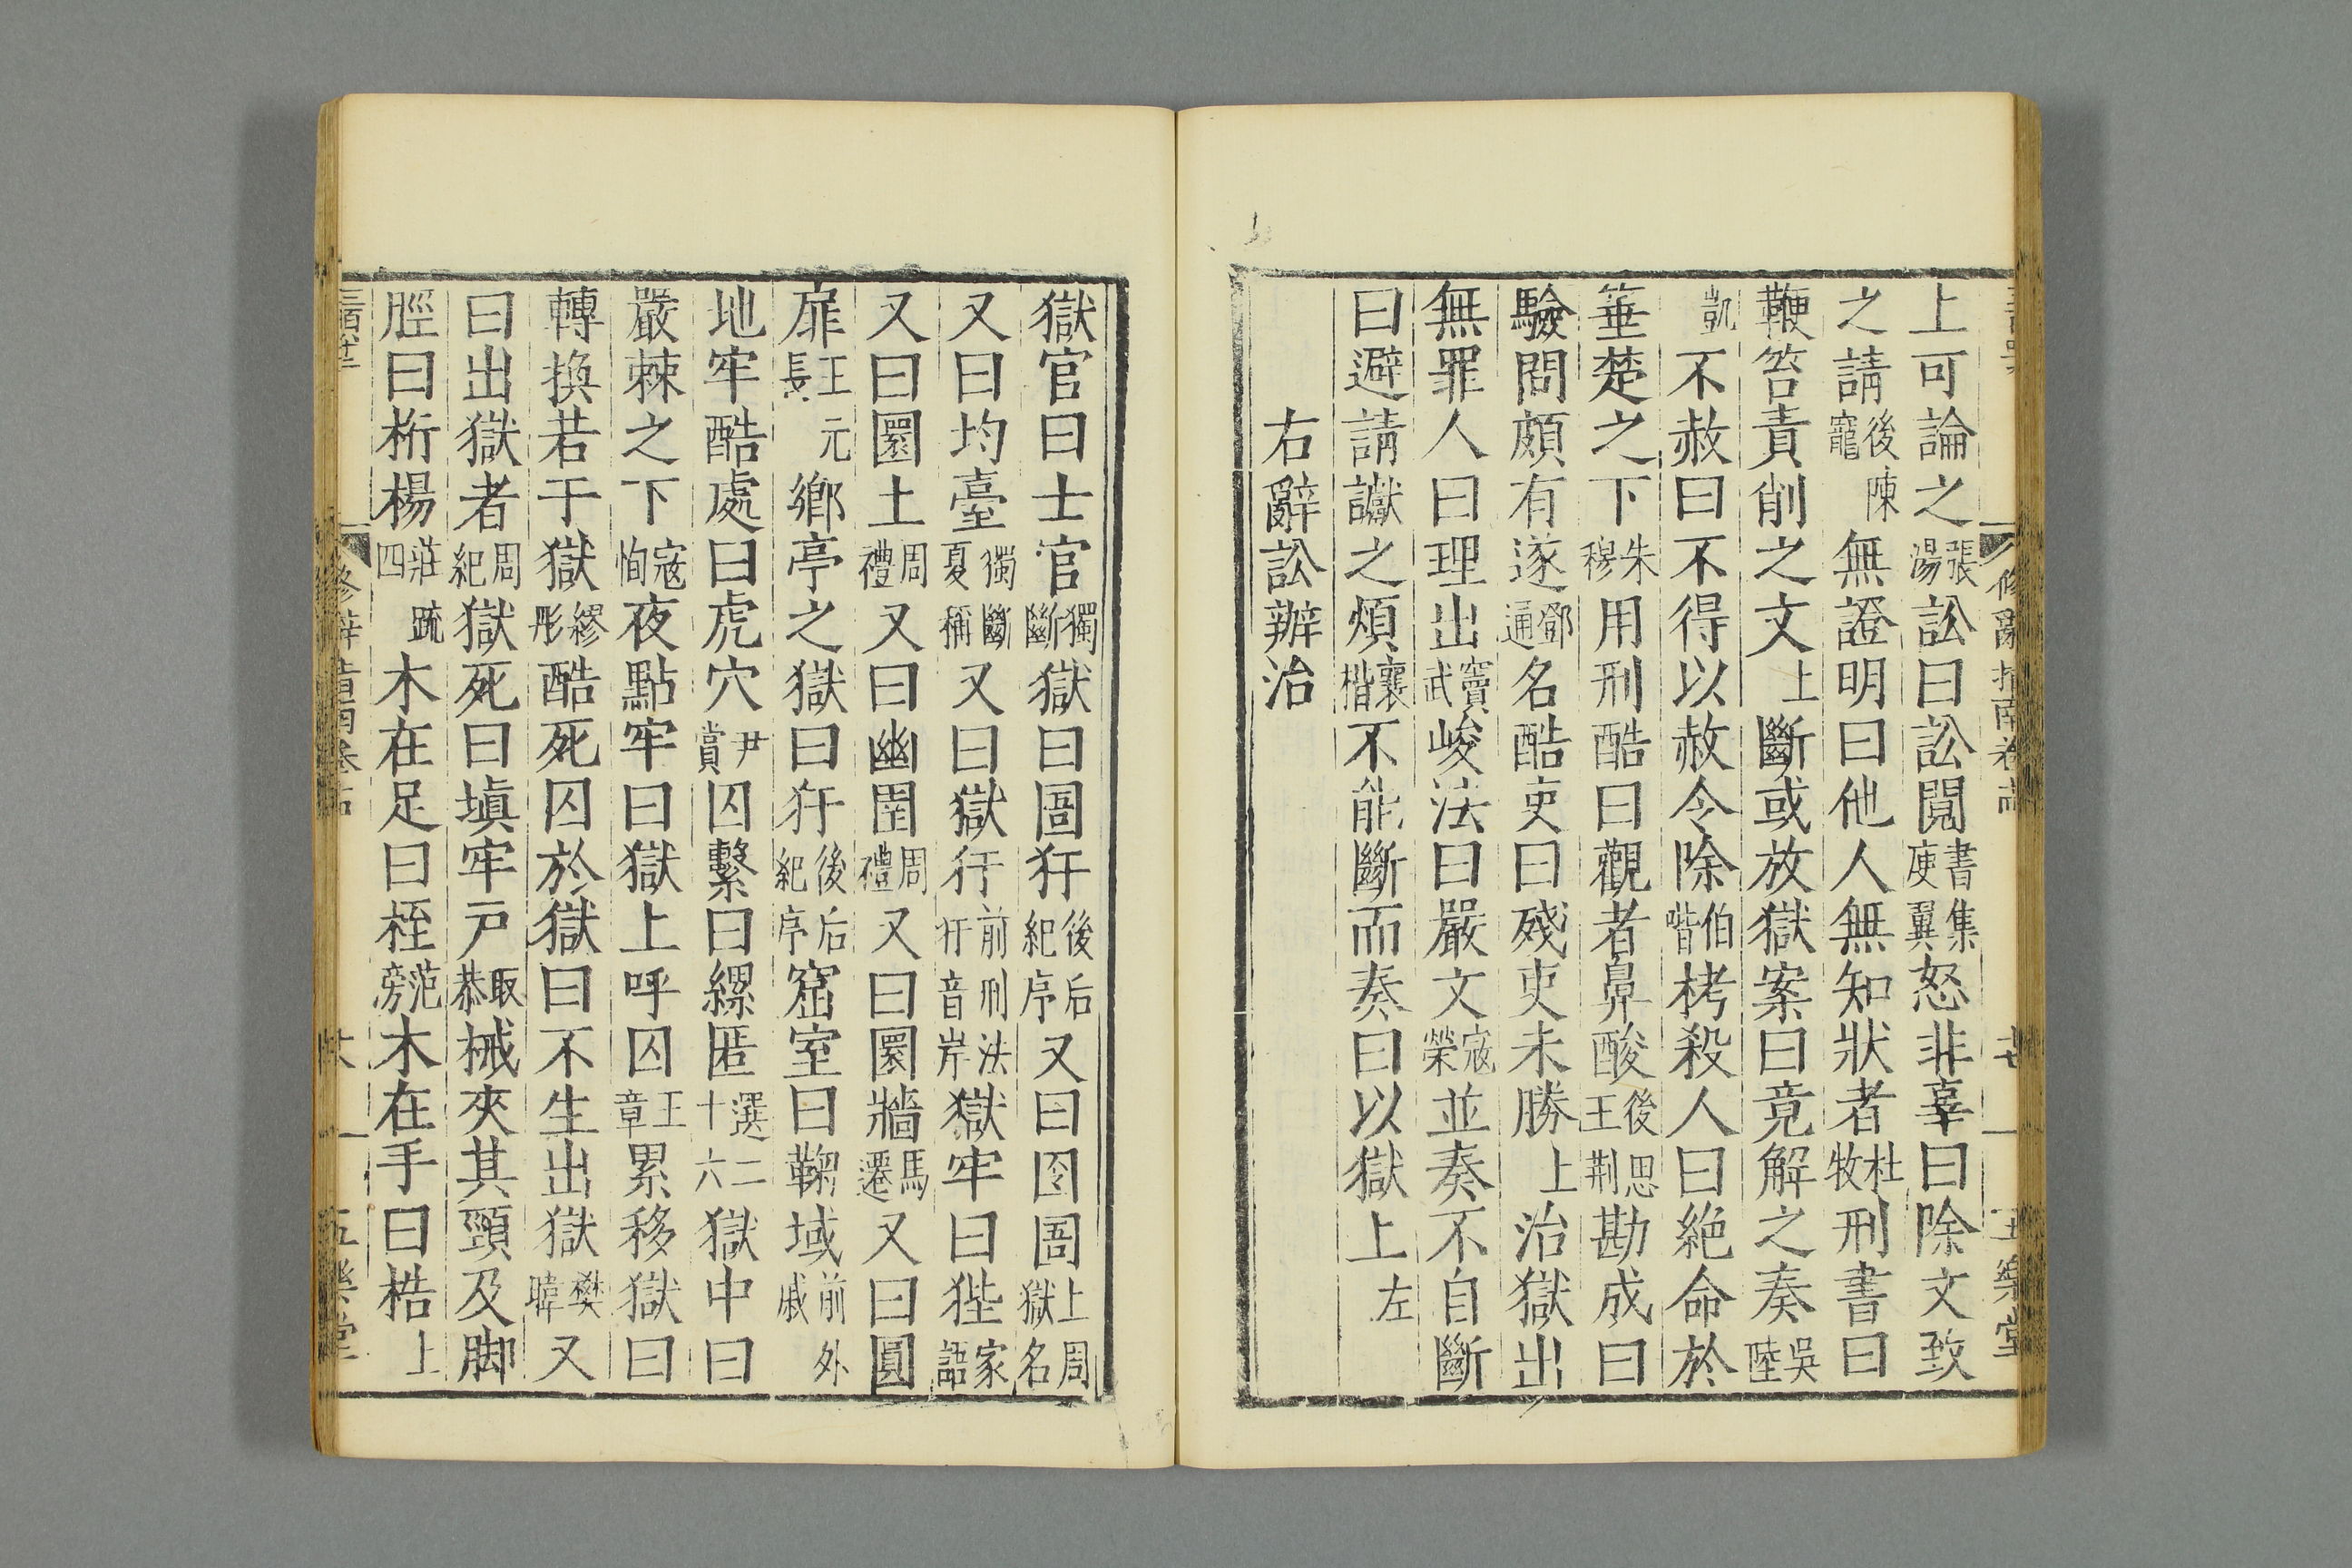 上可論之張湯訟曰訟䦧書庾集翼怒非辜曰除文致
之請後寵陳無證明曰他人無知狀者杜牧刑書曰
鞭笞責削之文上斷或放獄案曰竟解之奏吳陸
凱不赦曰不得以赦令除伯喈栲殺人曰絶命於
箠楚之下朱穆用刑酷曰觀者鼻酸後王思荆勘成曰
驗問頗有遂鄧通名酷吏曰殘吏未勝上治獄出
無罪人曰理出竇武峻法曰嚴文寇榮並奏不自斷
曰避請讞之煩襄楷不能斷而奏曰以獄上左
右辭訟辦治
修辭指南卷
五樂堂
獄官曰士官獨斷獄曰圄犴後紀后序又曰囹圄上獄周名
又曰均臺獨夏斷稱又曰獄犴前犴刑音法岸獄牢曰狴家語
又曰圜土周禮又曰幽圉周禮又曰圜牆馬遷又曰圓
扉王長元鄉亭之獄曰犴後紀后序窟室曰鞠域前戚外
地牢酷處曰虎穴尹賞囚繫曰縲匿選十二六獄中曰
嚴棘之下寇恂夜點牢曰獄上呼囚王章累移獄曰
轉換若干獄繆彤酷死囚於獄曰不生出獄樊曄又
曰出獄者周紀獄死曰塡牢戸取恭械夾其頸及脚
脛曰桁楊莊四䟽木在足曰桎范滂木在手曰梏上
修辭指南卷
五樂堂